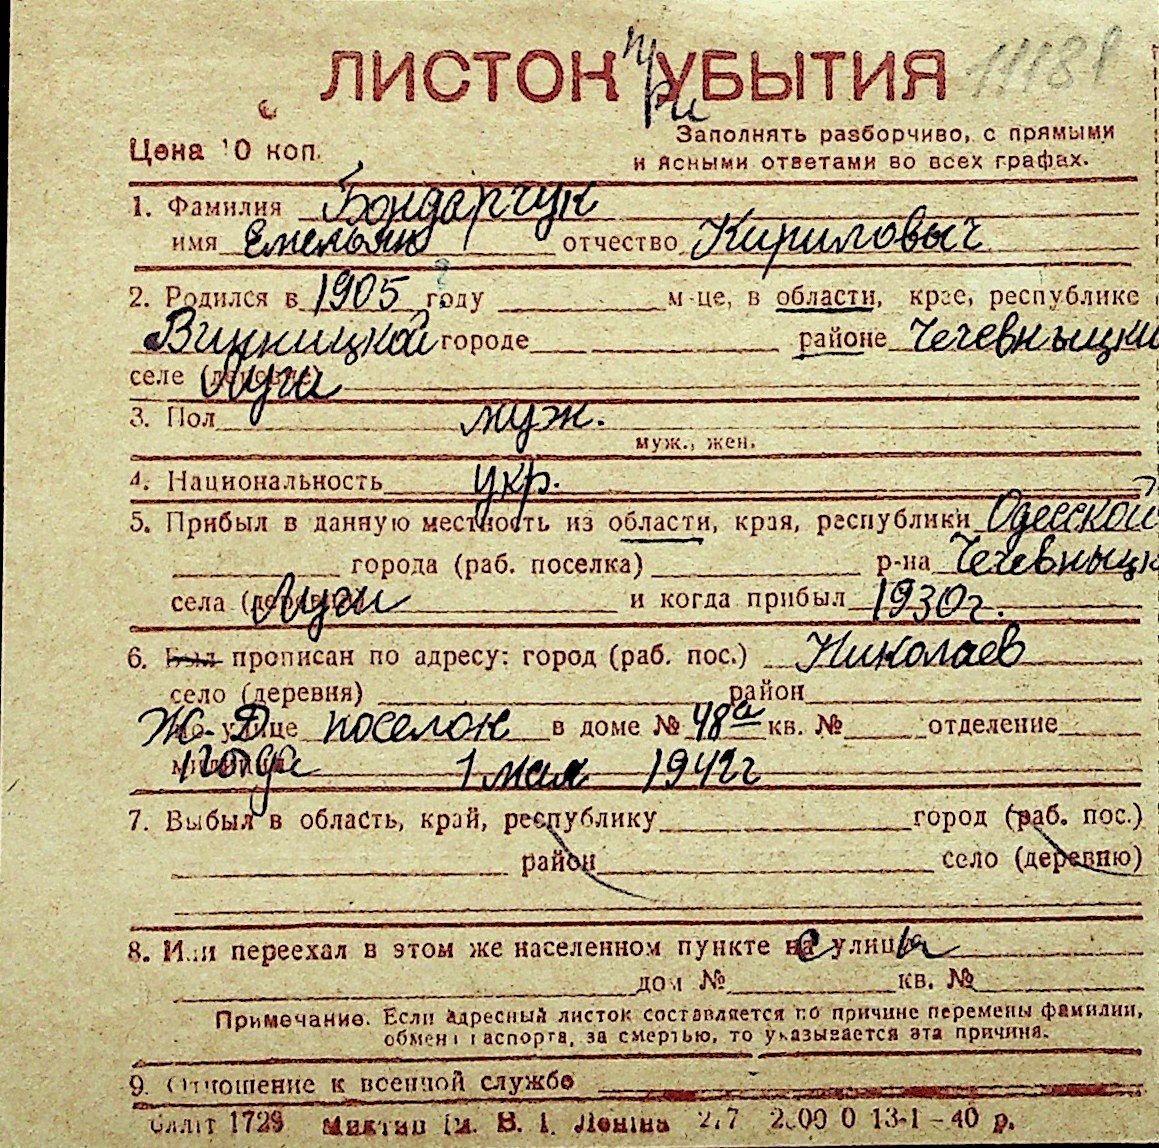 ЛИСТОК при УБЫТИЯ 11181
Цена 10 коп. Заполнять разборчиво, с прямыми
и ясными ответами во всех графах.
1. Фамилия Бондарчук
имя Емельян отчество Кириловыч
2. Родился в 1905 году м-це, в области, крае, республике
Винницкой городе районе Чечевныцки
селе (деревне) Луги
3. Пол муж.
муж., жен.
4. Национальность укр.
5. Прибыл в данную местность из области, края, республики Одесской
города (раб. поселка) р-на Чечевныцк
села (деревни) Луги и когда прибыл 1930 г.
6. Был прописан по адресу: город (раб. пос.) Николаев
село (деревня) район
Ж.Д. по улице поселок в доме № 48а кв. № отделение
милиции 1 года 1 мая 1942 г
7. Выбыл в область, край, республику город (раб. пос.)
район село (деревню)
8. Или переехал в этом же населенном пункте на улицу
дом № кв. №
Примечание. Если адресный листок составляется по причине перемены фамилии,
обмена паспорта, за смертью, то указывается эта причина.
9. Отношение к военной службе
Облліт 1729 Миктип ім. В. І. Леніна 13-1-40 р.